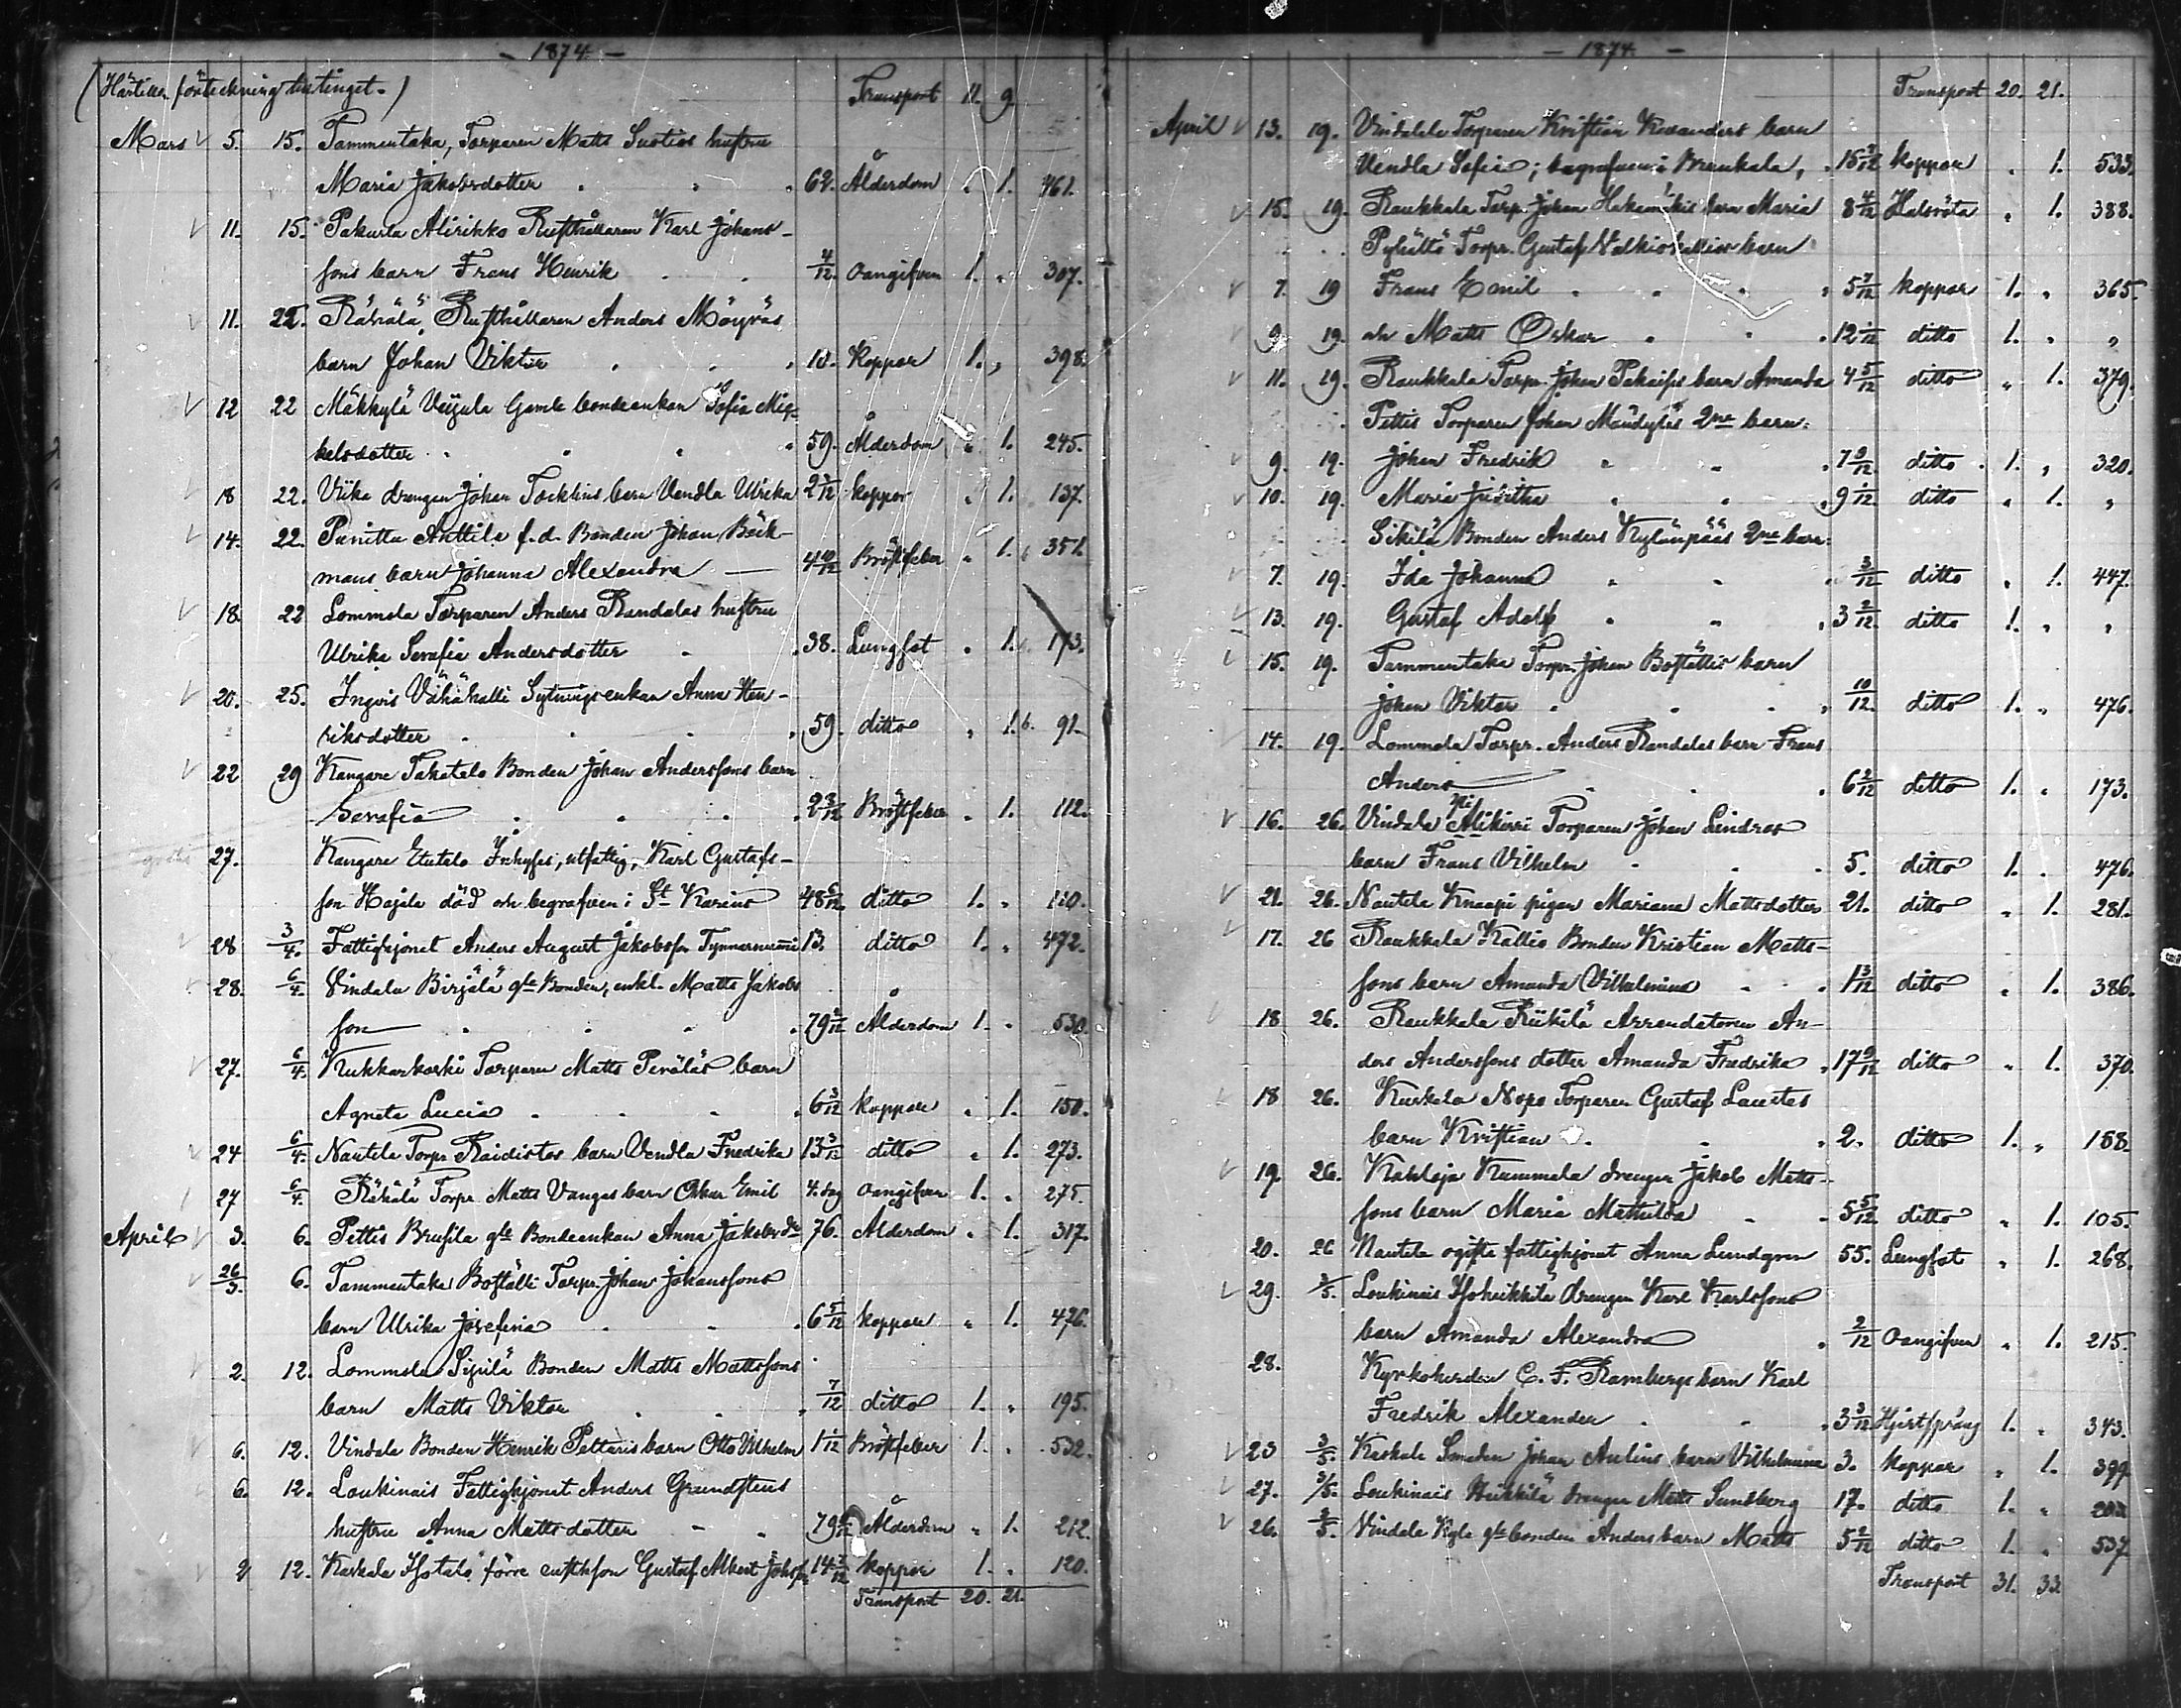 - 1874 -
(Härtill förteckning tinget.)
Transport 11. 9
Mars 5. 15. Tammentaka, Torparen Matts Suotios hustru
Maria Jakobsdotter 62. Ålderdom " 1. 461.
11. 15. Pakurla Alirihko Rusthållaren Karl Johans-
sons barn Frans Henrik 4/12 Oangifven 1. " 307.
11. 22. Rähälä, Rusthållaren Anders Möyräs
barn Johan Viktor 10. Koppor 1. " 398.
12 22 Mäkkylä Gamle bondeenkan Sofia Mic-
kelsdotter 59. Ålderdom " 1. 245.
18 22. Viika drengen Johan Tocklins barn Vendla Ulrika koppor " 1. 137.
14. 22. Anttila f.d. Bonden Johan Bäck-
mans barn Johanna Alexandra 4 10/12 Bröstfeber " 1. 351.
18. 22 Lommola Torparen Anders Randalas hustru
Ulrika Serafia Andersdotter 38. Lungsot " 1. 173.
20. 25. Ingois Vähähalli Sytningsenkan Anna Hen-
riksdotter 59. ditto " 1. 91.
22 29 Kangare Takatalo Bonden Johan Anderssons barn
Serafia 2 3/12 Bröstfeber " 1. 112.
27. Kangare Etutalo Inhyses, utfattig, Karl Gustafs-
son Hajala död och begrafven i St Karins 48 6/12 ditto 1. " 110.
28 3/4. Fattighjonet Anders August Jakobsson 13. ditto 1. " 472.
28. 6/4. Vindala Birjälä gle Bonden, enkl. Matts Jakobs
son 79 Ålderdom 1. " 530.
27. 6/4. Kukkarkoski Torparen Matts Peräläs barn
Agneta Lucia 6 3/12 koppor " 1. 150.
24 6/4. Nautela Torpr Raidistos barn Vendla Fredrika 13 3/12 ditto " 1. 273.
27 6/4. Rähälä Torpr. Matts Vangas barn Oskar Emil 4. dag Oangifven 1. " 275.
April 3. 6. Pettis Brusila gle Bondeenkan Anna Jakobsdr 76. Ålderdom " 1. 317.
26/3. 6. Tammentaka Boställi Torpr. Johan Johanssons
barn Ulrika Josefina 6 5/12 koppor " 1. 476.
2. 12. Lommola Sipilä Bonden Matts Mattssons
barn Matts Viktor 7/12 ditto 1. " 195.
6. 12. Vindala Bonden Henrik Peltaris barn Otto Vilhelm 1 1/12 Bröstfeber 1. " 532.
6. 12. Loukinais Fattighjonet Anders Grundstens
hustru Anna Mattsdotter 79 Ålderdom " 1. 212.
2 12. Kaskala Isotalo förre rusthson Gustaf Albert Johsson 14 koppor 1. " 120.
Transport 20. 21.
- 1874 -
Transport 20. 21.
April 13. 19. Vindala Torparen Kristian Kexanders barn
Vendla Sofia; begrafven i koppor " 1. 533.
15. 19. Raukkala Torp. Johan barn Maria 8 4/12 Halsröta " 1. 388.
Pyhältö Torpr. Gustaf Valkiokallios barn
7. 19 Frans Emil 5 7/12 koppor 1. " 365.
9 19. och Matts Oskar 12 1/12 ditto 1. " "
11. 19. Raukkala Torpr. Johan barn Amanda 4 5/12 ditto " 1. 379.
Pettis Torparen Johan Mändyläs 2ne barn:
9. 19. Johan Fredrik 7 9/12 ditto 1. " 320.
10. 19. Maria Justina 9 1/12 ditto " 1. "
Sikilä Bonden Anders Kylänpääs 2ne barn:
7. 19. Ida Johanna 3/12 ditto " 1. 447.
13. 19. Gustaf Adolf 3 2/12 ditto 1. " "
15. 19. Tammentaka Torpr. Johan Boställis barn
Johan Viktor 10/12. ditto 1. " 476.
14. 19. Lommola Torpr. Anders Randalas barn Frans
Anders 6 2/12 ditto 1. " 173.
16. 26. Vindala Alikirri Torparen Johan Lindros
barn Frans Vilhelm 5. ditto 1. " 476.
21. 26. Nautela Knaapi pigan Mariana Mattsdotter 21. ditto " 1. 281.
17. 26 Raukkala Kallio Bonden Kristian Matts-
sons barn Amanda Vilhelmina 1 3/12 ditto " 1. 386.
18 26. Raukkala Riikilä Arrendatoren An-
ders Anderssons dotter Amanda Fredrika 17 9/12 ditto " 1. 370.
18 26. Kurkela Nopo Torparen Gustaf Laustes
barn Kristian 2. ditto 1. " 158.
19. 26. Kahloja Kummala drengen Jakob Matts-
sons barn Maria Mathilda 5 5/12 ditto " 1. 105.
20. 26 Nautela ogifta fattighjonet Anna Lundgren 55. Lungsot " 1. 268.
29. 3/5. Loukinais Isoheikkilä drengen Karl Karlssons
barn Amanda Alexandra 2/12 Oangifven " 1. 215.
28. Kyrkoherden C. F. Rambergs barn Karl
Fredrik Alexander 3 3/12 Hjertspräng 1. " 343.
23 3/5. Kaskala Smeden Johan Aulins barn Vilhelmina 3. koppor " 1. 399
27. 3/5. Loukinais Heikkilä drengen Matts Sundberg 17. ditto 1. "
26. 3/5. Vindala Kyla gle bonden Anders barn Matts 5 2/12 ditto 1. " 537
Transport 31. 33